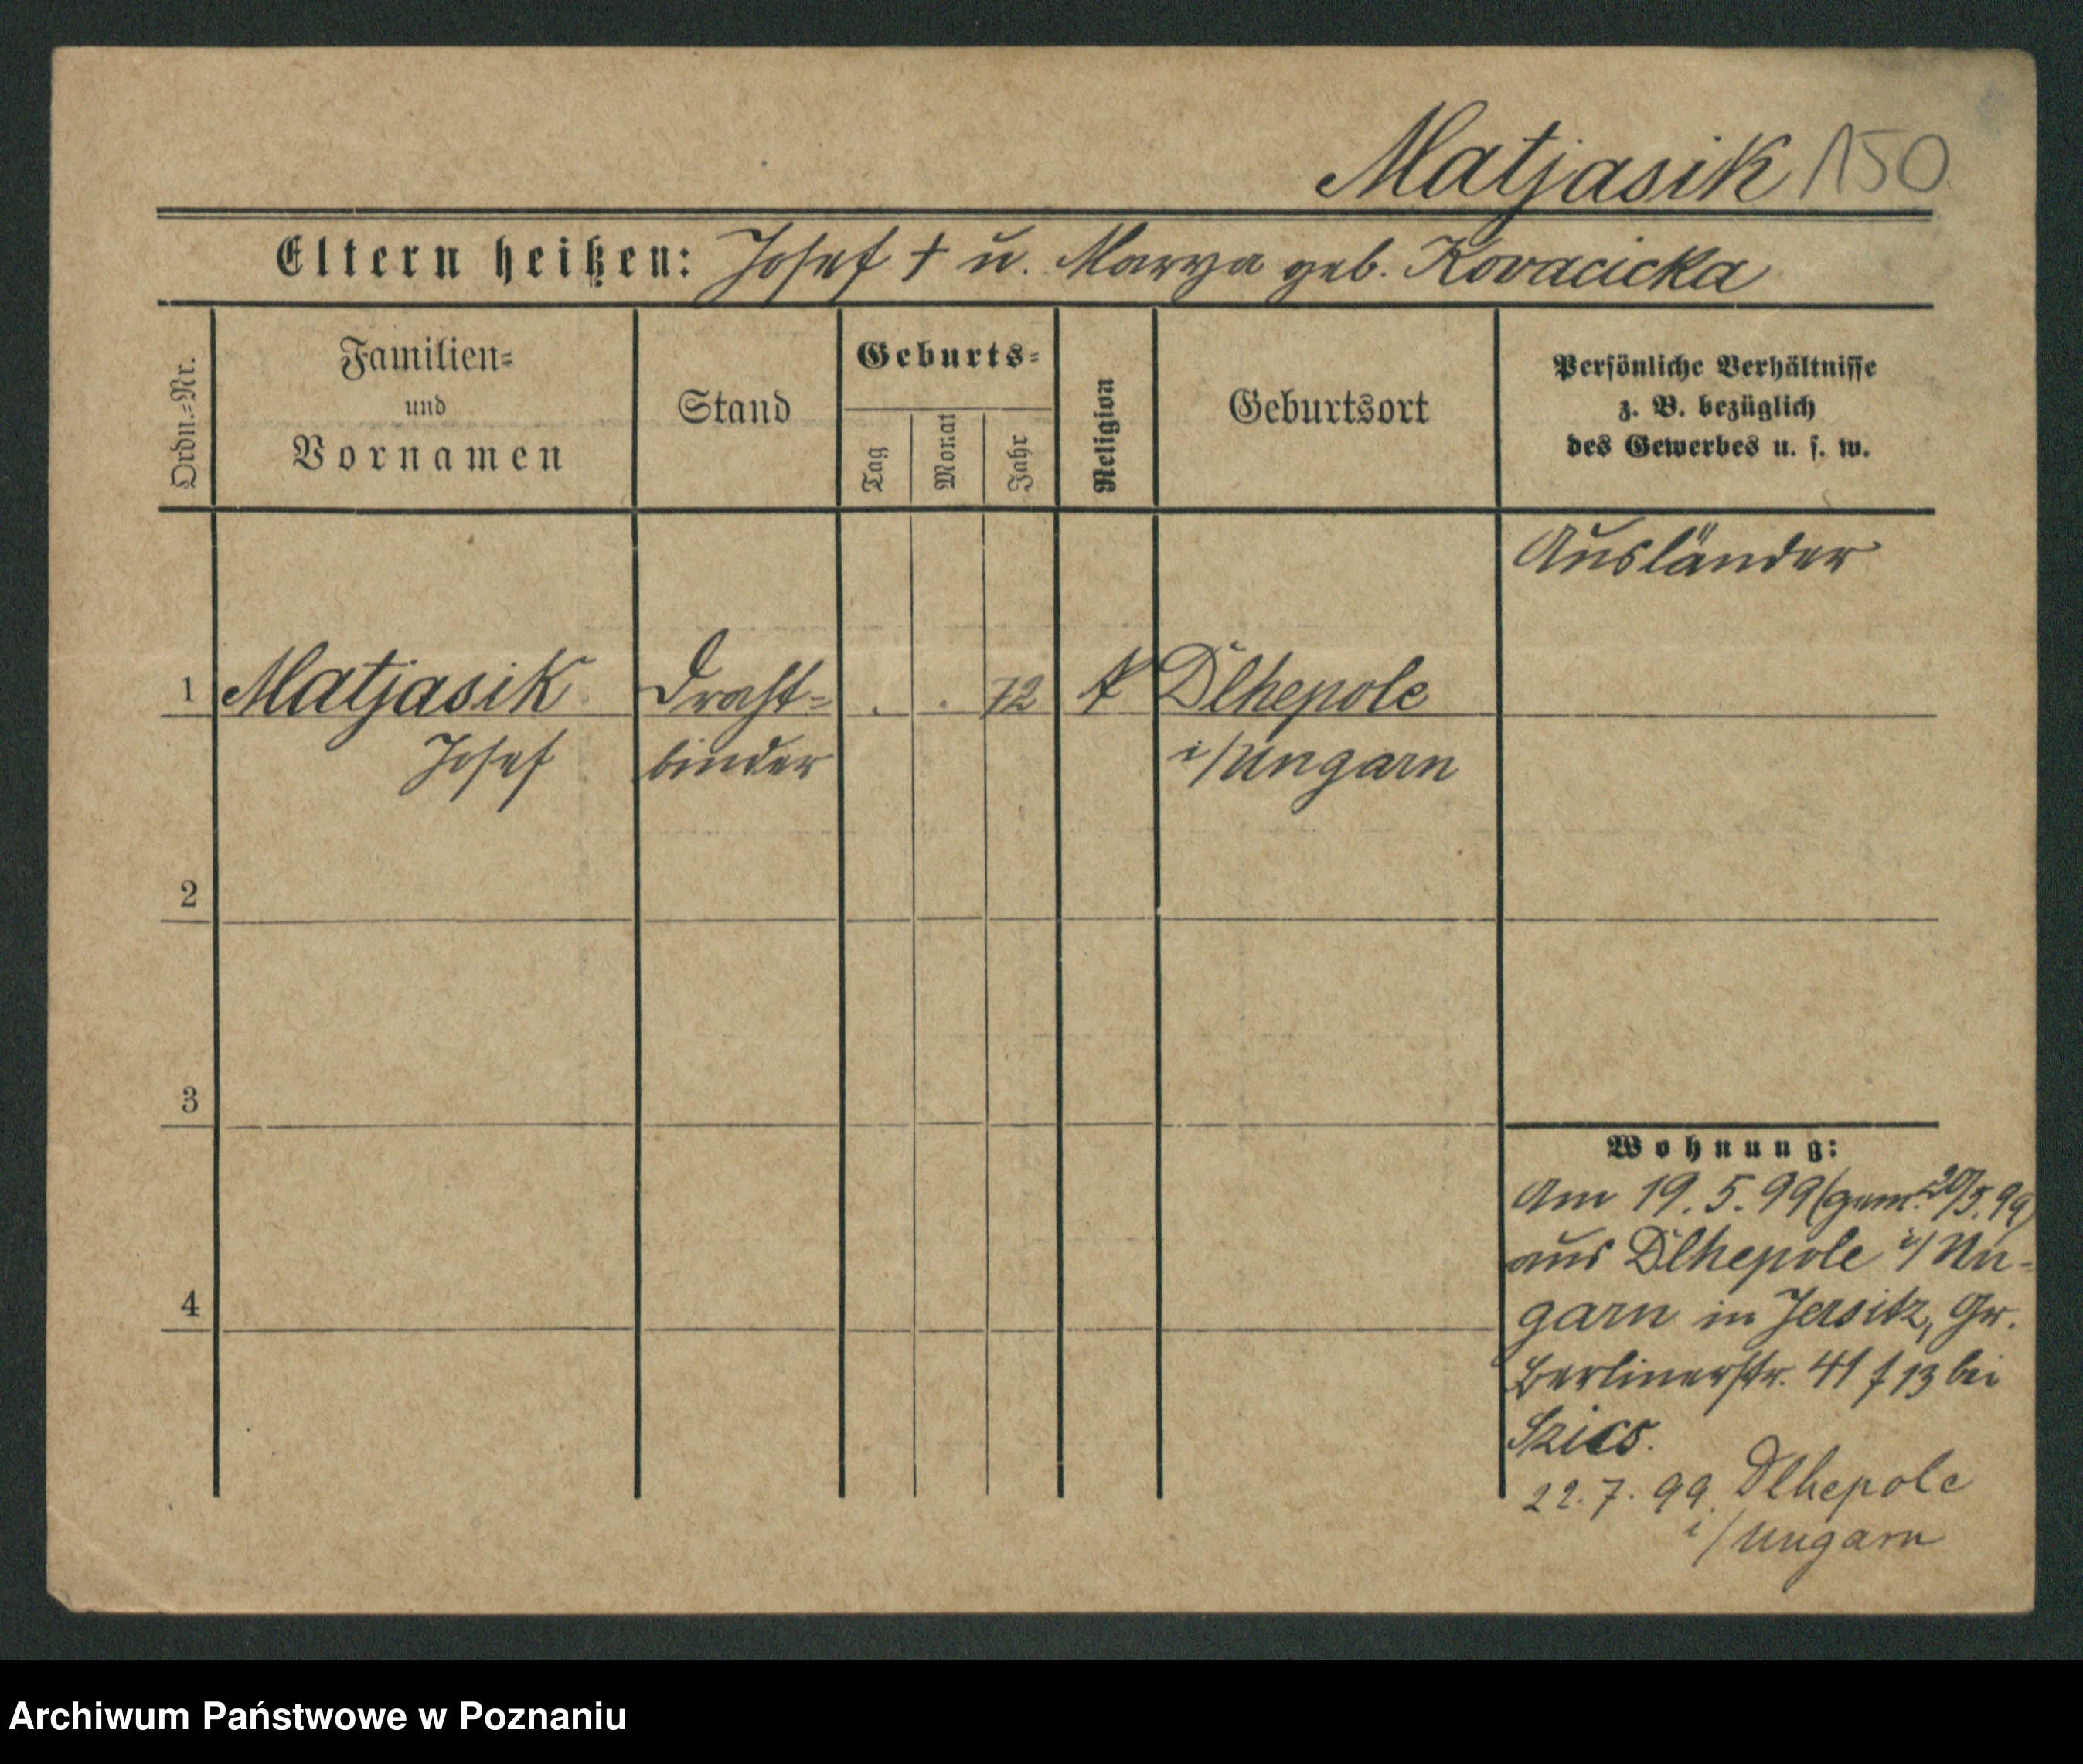 Matjasik 150
Eltern heißen: Josef † u. Marya geb. Kovacicka
Ordn.-Nr.
Familien-
und
Vornamen
Stand
Geburts-
Tag
Monat
Jahr
Religion
Geburtsort
Persönliche Verhältnisse
z. B. bezüglich
des Gewerbes u. s. w.
Ausländer
1 Matjasik Draht- . . 72 K Dlhepole
Josef binder i/Ungarn
2
3
4
Wohnung:
Am 19.5.99 (gem. 20/5.99)
aus Dlhepole i/Un-
garn in Jersitz, Gr.
Berlinerstr. 41 f 13 bei
Szics.
22.7.99. Dlhepole
i/Ungarn
Archiwum Państwowe w Poznaniu